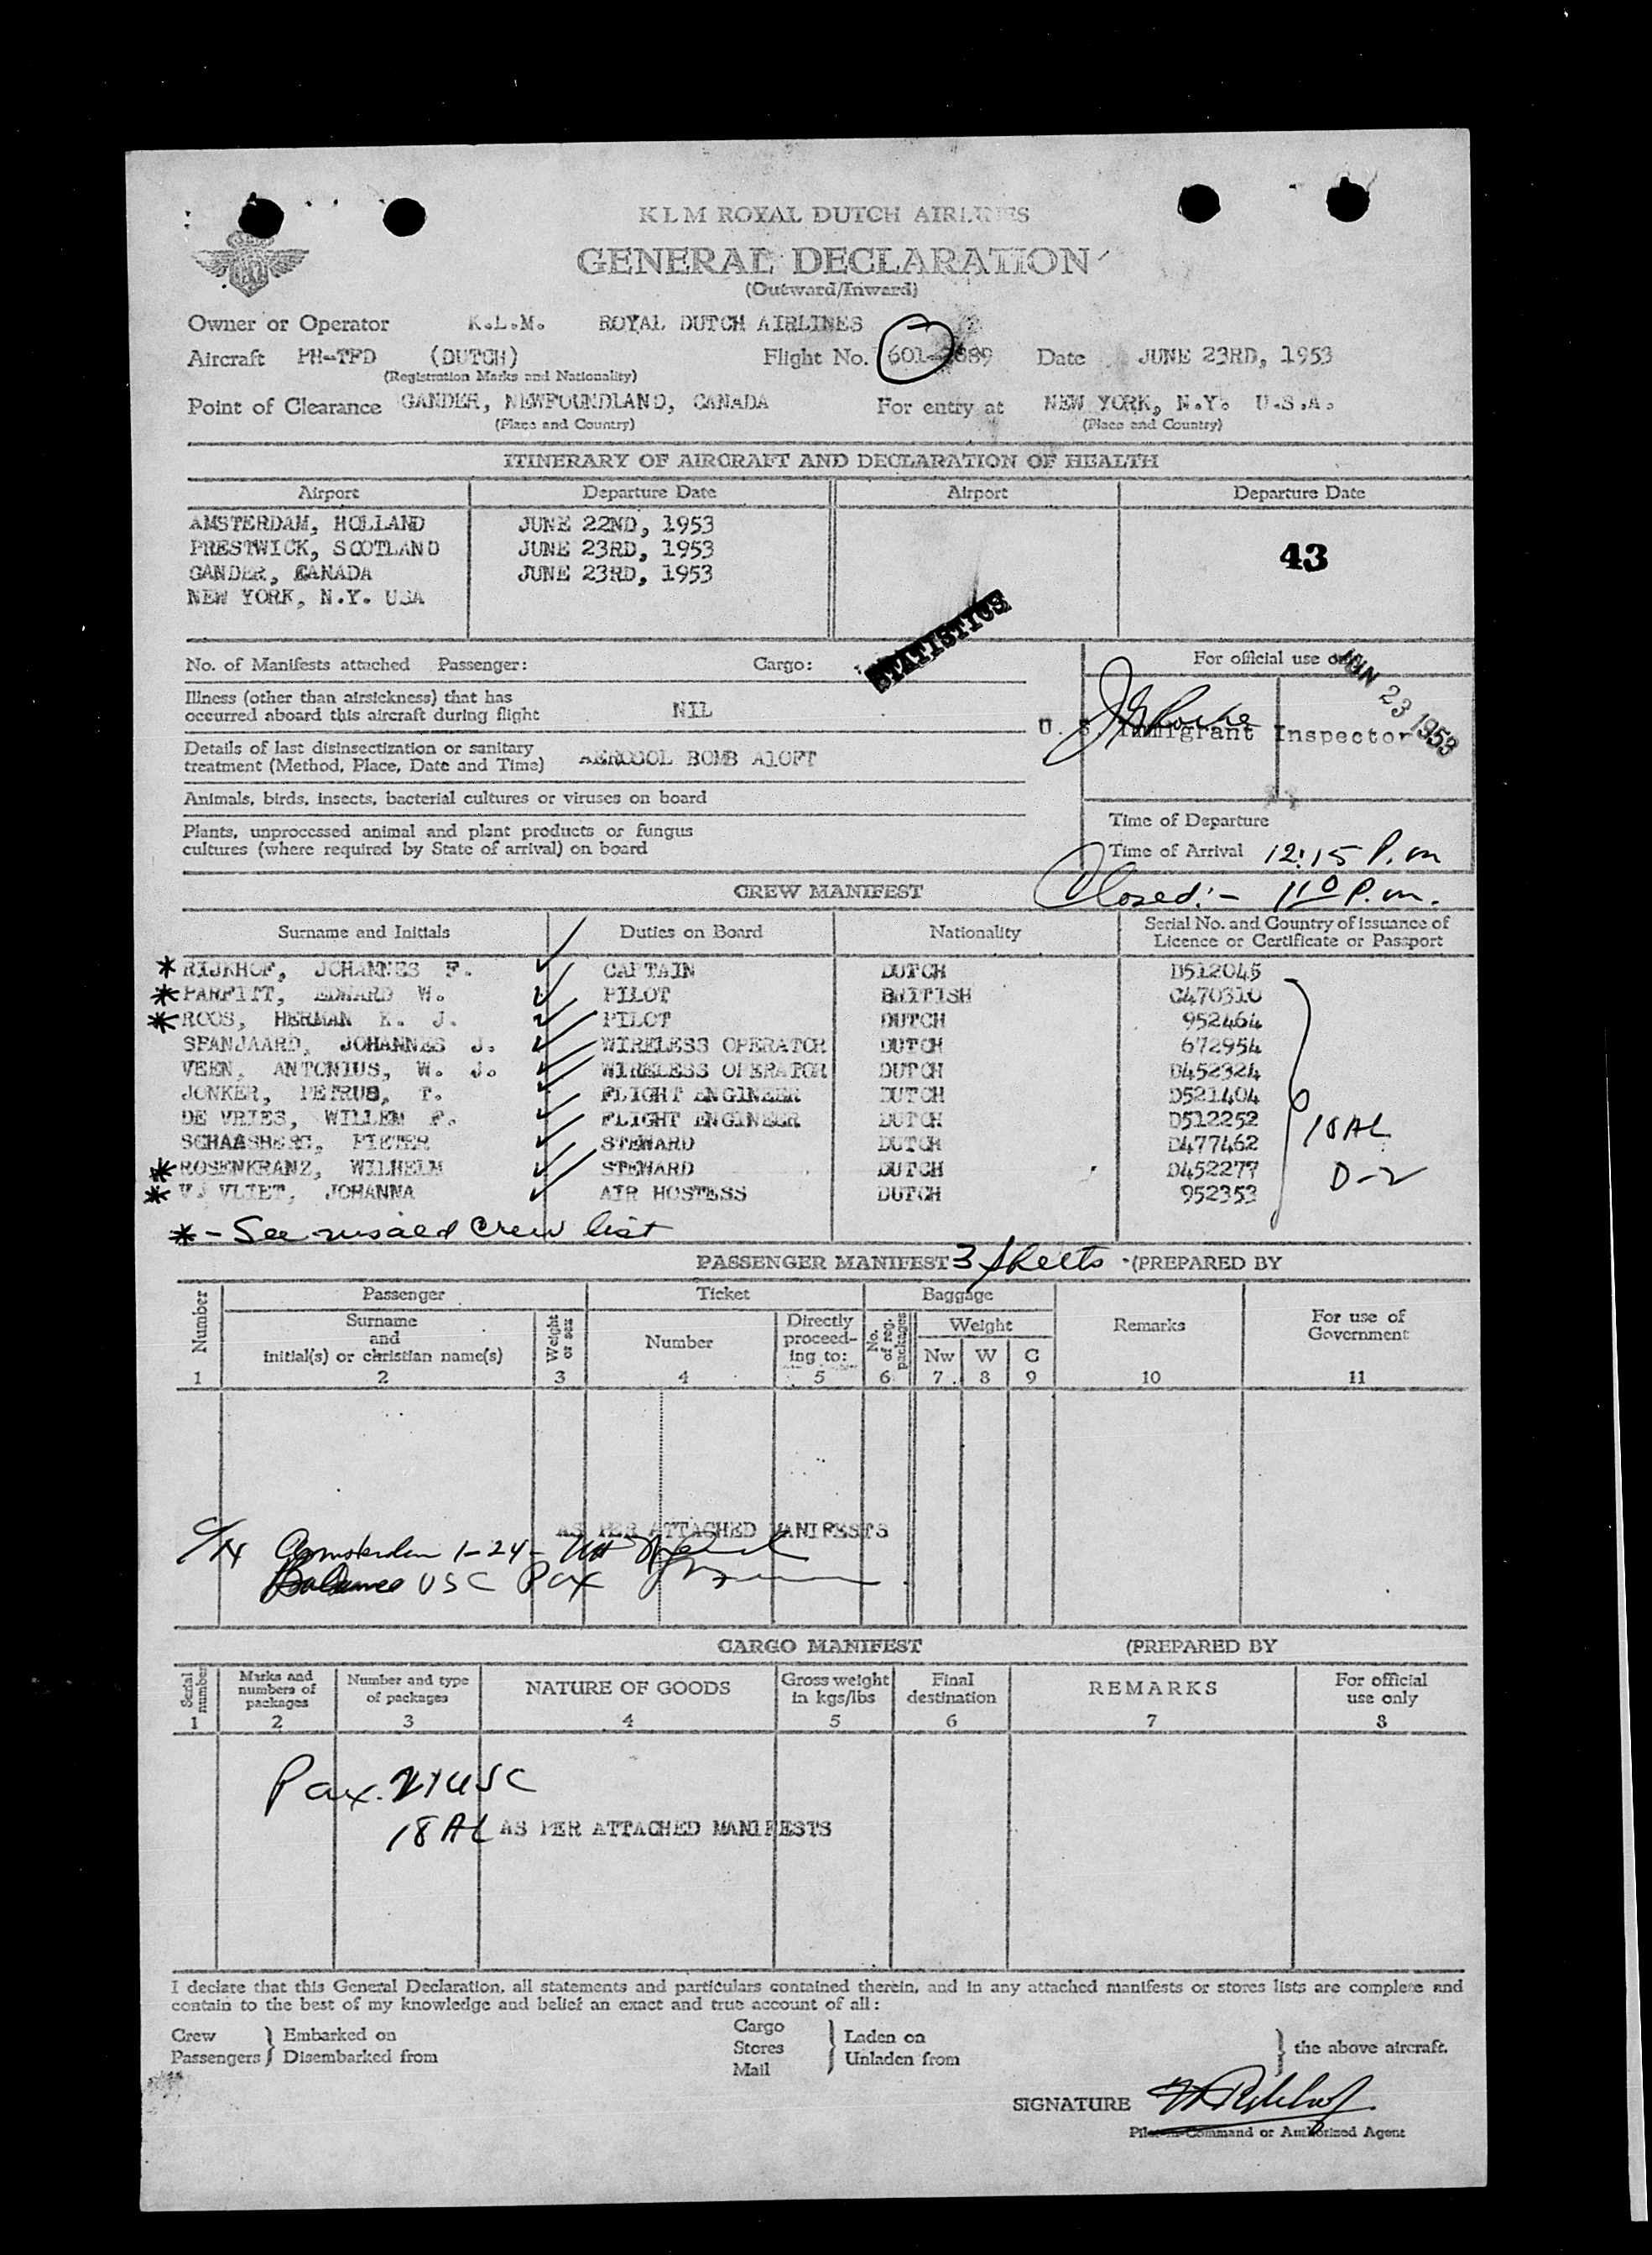 KLM ROYAL DUTCH AIRLINES
GENERAL DECLARATION
(Outward/Inward)
Owner or Operator K.L.M. ROYAL DUTCH AIRLINES
Aircraft PH-TPD (DUTCH) Flight No. 601- Date JUNE 23RD, 1953
(Registration Marks and Nationality)
Point of Clearance GANDER, NEWFOUNDLAND, CANADA For entry at NEW YORK, N.Y. U.S.A.
(Place and Country) (Place and Country)
ITINERARY OF AIRCRAFT AND DECLARATION OF HEALTH
Airport Departure Date Airport Departure Date
AMSTERDAM, HOLLAND JUNE 22ND, 1953
PRESTWICK, SCOTLAND JUNE 23RD, 1953 43
GANDER, CANADA JUNE 23RD, 1953
NEW YORK, N.Y. USA
STATISTICS
No. of Manifests attached Passenger: Cargo: For official use only
JUN 23 1953
Illness (other than airsickness) that has
occurred aboard this aircraft during flight NIL
U. S. Immigrant Inspector
Details of last disinsectization or sanitary
treatment (Method, Place, Date and Time) AEROSOL BOMB ALOFT
Animals, birds, insects, bacterial cultures or viruses on board
Plants, unprocessed animal and plant products or fungus
cultures (where required by State of arrival) on board
Time of Departure
Time of Arrival 12:15 P.m
Closed:- 1 10 P.m.
CREW MANIFEST
Surname and Initials Duties on Board Nationality Serial No. and Country of issuance of
Licence or Certificate or Passport
* RIJKHOF, JOHANNES F. CAPTAIN DUTCH D512045
* PARFITT, EDWARD W. PILOT BRITISH C470310
* ROOS, HERMAN K. J. PILOT DUTCH 952464
SPANJAARD, JOHANNES J. WIRELESS OPERATOR DUTCH 672954
VEEN, ANTONIUS, W. J. WIRELESS OPERATOR DUTCH D452324
JONKER, PETRUS, T. FLIGHT ENGINEER DUTCH D521404
DE VRIES, WILLEM F. FLIGHT ENGINEER DUTCH D512252
SCHAASBERG, PIETER STEWARD DUTCH D477462
10 AL
* ROSENKRANZ, WILHELM STEWARD DUTCH D452277
D-2
* V. VLIET, JOHANNA AIR HOSTESS DUTCH 952353
* - See visaed Crew list
PASSENGER MANIFEST 3 sheets (PREPARED BY
Number Passenger Ticket Baggage Remarks For use of
Government
Surname
and
initial(s) or christian name(s) Weight or sex Number Directly
proceed-
ing to: No. of reg. packages Weight
Nw W C
1 2 3 4 5 6 7 8 9 10 11
AS PER ATTACHED MANIFESTS
Amsterdam 1-24-
Balance USC Pax
CARGO MANIFEST (PREPARED BY
Serial number Marks and
numbers of
packages Number and type
of packages NATURE OF GOODS Gross weight
in kgs/lbs Final
destination REMARKS For official
use only
1 2 3 4 5 6 7 8
Pax. 21 USC
18 AL AS PER ATTACHED MANIFESTS
I declare that this General Declaration, all statements and particulars contained therein, and in any attached manifests or stores lists are complete and
contain to the best of my knowledge and belief an exact and true account of all:
Crew
Passengers Embarked on
Disembarked from Cargo
Stores
Mail Laden on
Unladen from the above aircraft.
SIGNATURE
Pilot-in-Command or Authorized Agent